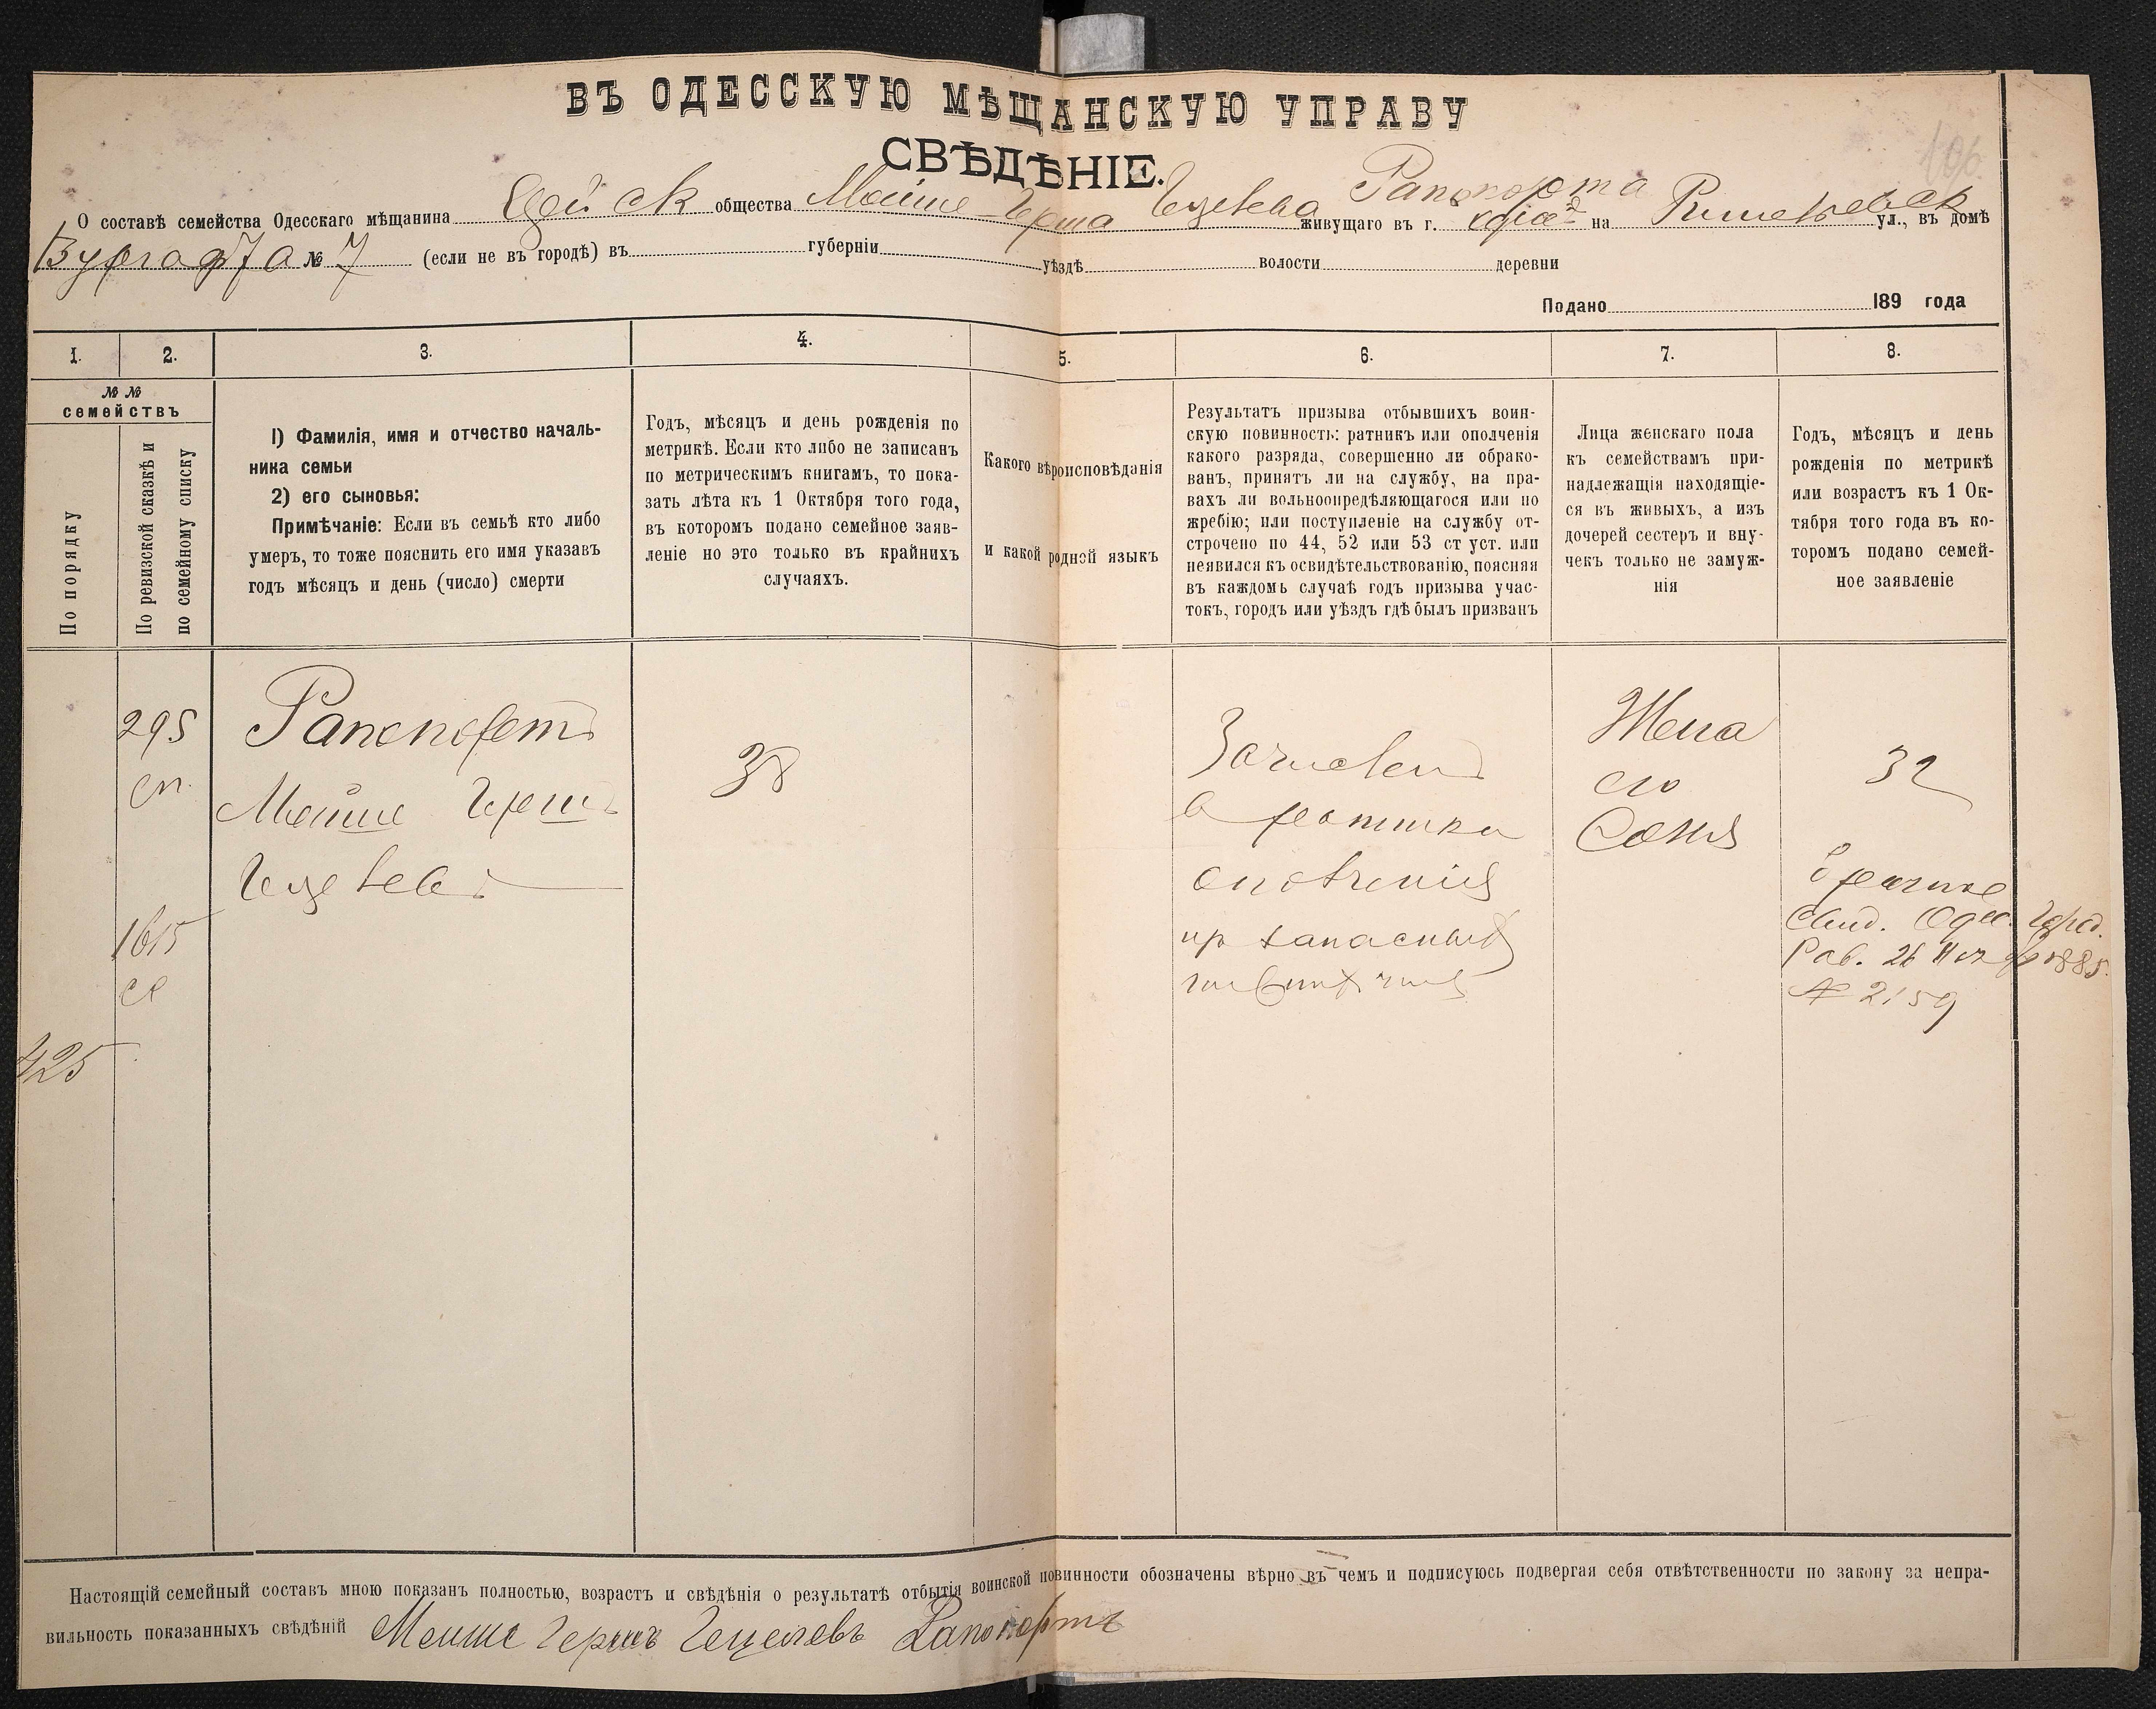 ВЪ ОДЕССКУЮ МѢЩАНСКУЮ УПРАВУ
СВѢДѢНІЕ.
О составѣ семейства Одесскаго мѣщанина общества Мойше-Герша Гецелева Рапопорта живущаго въ г. Одессѣ на Ришельевск ул., въ домѣ
№ 7 (если не въ городѣ) въ губерніи уѣздѣ волости деревни
Подано 189 года
1. 2. 3. 4. 5. 6. 7. 8.
№ №
семействъ
По порядку
По ревизской сказкѣ и
по семейному списку
1) Фамилія, имя и отчество началь-
ника семьи
2) его сыновья:
Примѣчаніе: Если въ семьѣ кто либо
умеръ, то тоже пояснить его имя указавъ
годъ мѣсяцъ и день (число) смерти
Годъ, мѣсяцъ и день рожденія по
метрикѣ. Если кто либо не записанъ
по метрическимъ книгамъ, то пока-
зать лѣта къ 1 Октября того года,
въ которомъ подано семейное заяв-
леніе но это только въ крайнихъ
случаяхъ.
Какого вѣроисповѣданія
и какой родной языкъ
Результатъ призыва отбывшихъ воин-
скую повинность: ратникъ или ополченія
какого разряда, совершенно ли обрако-
ванъ, принятъ ли на службу, на пра-
вахъ ли вольноопредѣляющагося или по
жребію; или поступленіе на службу от-
строчено по 44, 52 или 53 ст уст. или
неявился къ освидѣтельствованію, поясняя
въ каждомъ случаѣ годъ призыва учас-
токъ, городъ или уѣздъ гдѣ былъ призванъ
Лица женскаго пола
къ семействамъ при-
надлежащія находящіе-
ся въ живыхъ, а изъ
дочерей сестеръ и вну-
чекъ только не замуж-
нія
Годъ, мѣсяцъ и день
рожденія по метрикѣ
или возрастъ къ 1 Ок-
тября того года въ ко-
торомъ подано семей-
ное заявленіе
295
сп.
1615
425
Рапопортъ
Мойше Гершъ
Гецелевъ
38
Зачисленъ
в ратники
ополченія
Жена
его
Соня
32
Одес. Город.
Рав. 26 1885.
№ 2159
Настоящій семейный составъ мною показанъ полностью, возрастъ и свѣдѣнія о результатѣ отбытія воинской повинности обозначены вѣрно въ чемъ и подписуюсь подвергая себя отвѣтственности по закону за непра-
вильность показанныхъ свѣдѣній Мойше Гершъ Гецелевъ Рапопортъ